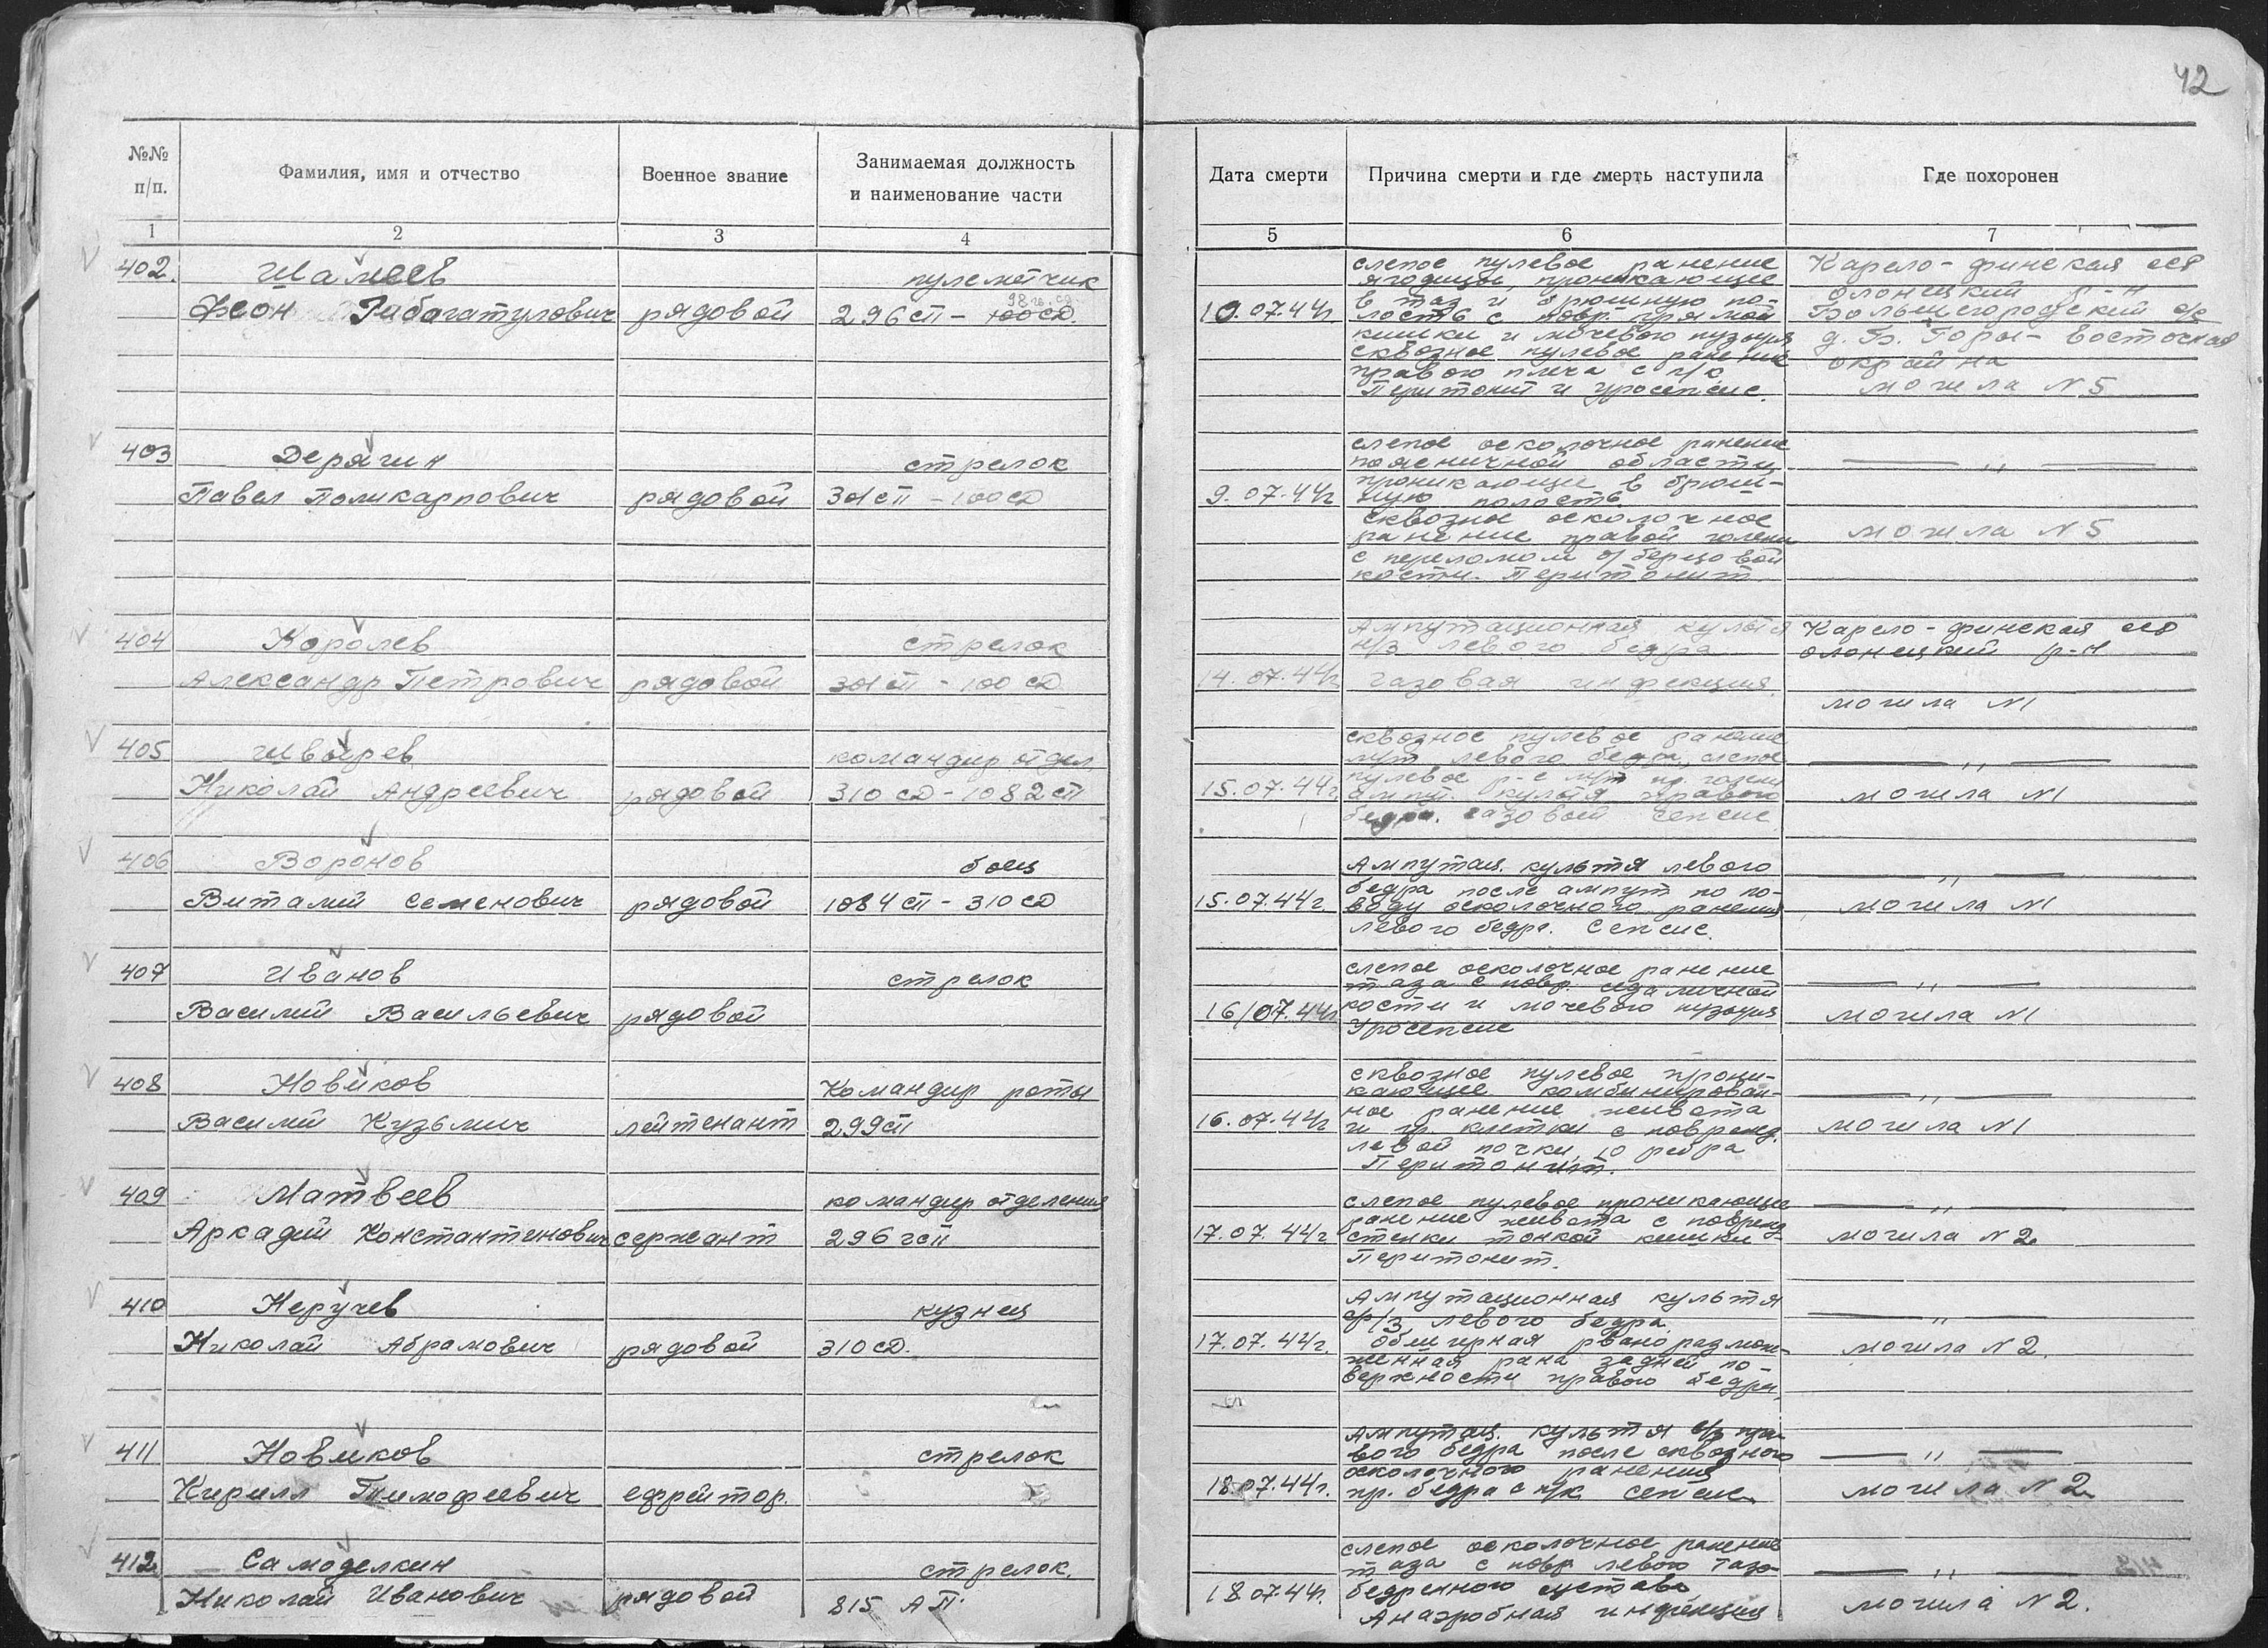 42
№№ п/п.
Фамилия, имя и отчество
Военное звание
Занимаемая должность
и наименование части
Дата смерти
Причина смерти и где смерть наступила
Где похоронен
1 2 3 4 5 6 7
402. Шамеев
Феон Габагатулович рядовой
пулеметчик
98 гв. сд.
296 СП - 100 СД.
10.07.44г.
слепое пулевое ранение
ягодицы, проникающее
в таз и брюшную по-
лость с повр. прямой
кишки и мочевого пузыря
сквозное пулевое ранение
правого плеча с п/к
Перитонит и уросепсис.
Карело-финская сср
Олонецкий р-н
Большегородский с/с
д. Б. Горы - восточная
окрайна
могила N 5
403 Дерягин
Павел Поликарпович рядовой
стрелок
301 СП - 100 СД
9.07.44г
слепое осколочное ранение
поясничной области
проникающее в брюш-
ную полость.
сквозное осколочное
ранение правой голени
с переломом б/берцовой
кости. Перитонит
— " —
могила N 5
404 Королев
Александр Петрович рядовой
стрелок
301 СП - 100 СД
14.07.44г
Ампутационная культя
н/з левого бедра
газовая инфекция.
Карело-финская сср
олонецкий р-н
могила N1
405 Швырев
Николай Андреевич рядовой
командир отдел.
310 СД - 1082 СП
15.07.44г.
сквозное пулевое ранение
м/т левого бедра, слепое
пулевое р-е м/т пр. голени
ампут. культя правого
бедра. газовый сепсис
— " —
могила N1
406 Воронов
Виталий Семенович рядовой
боец
1084 СП - 310 СД
15.07.44г.
Ампутац. культя левого
бедра после ампут по по-
воду осколочного ранения
левого бедра. Сепсис.
— " —
могила N1
407 Иванов
Василий Васильевич рядовой
стрелок
16/07.44г
слепое осколочное ранение
таза с повр. седаличной
кости и мочевого пузыря
Уросепсис
— " —
могила N1
408 Новиков
Василий Кузьмич лейтенант
Командир роты
299 СП
16.07.44г
сквозное пулевое прони-
кающее комбинирован-
ное ранение живота
и гр. клетки с поврежд.
левой почки, 10 ребра
Перитонит.
— " —
могила N1
409 Матвеев
Аркадий Константинович сержант
командир отделения
296 гсп
17.07.44г
слепое пулевое проникающее
ранение живота с поврежд
стенки тонкой кишки
Перитонит.
— " —
могила N 2
410 Неручев
Николай Абрамович рядовой
кузнец
310 СД.
17.07.44г.
Ампутационная культя
с/з левого бедра
Обширная рвано размож-
женная рана задней по-
верхности правого бедра.
— " —
могила N 2.
411 Новиков
Кирилл Тимофеевич ефрейтор.
стрелок
18.07.44г.
Ампутац. культя с/з пра-
вого бедра после сквозного
осколочного ранения
пр. бедра с п/к сепсис
— " —
могила N 2
412 Самоделкин
Николай Иванович рядовой
стрелок.
815 АП.
18.07.44г.
слепое осколочное ранение
таза с повр левого тазо-
бедренного сустава
Анаэробная инфекция
— " —
могила N 2.